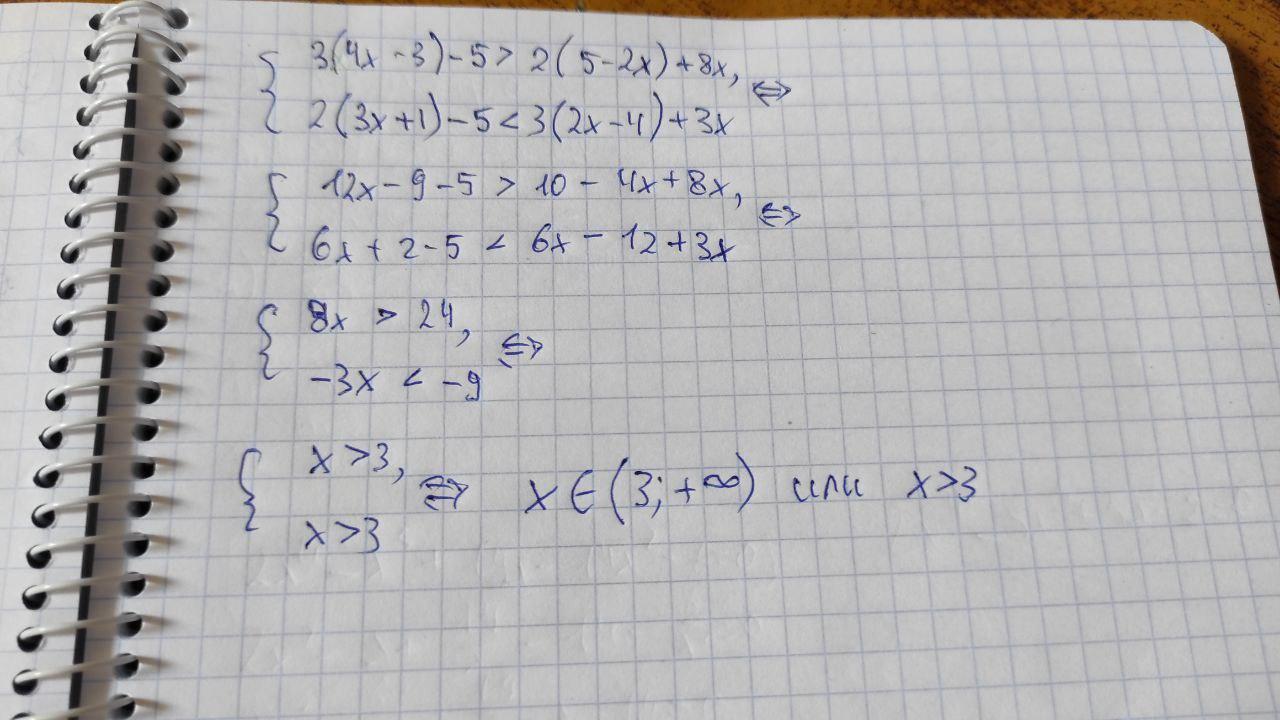 3(4x - 3) - 5 > 2(5 - 2x) + 8x, ⇔
2(3x + 1) - 5 < 3(2x - 4) + 3x
12x - 9 - 5 > 10 - 4x + 8x, ⇔
6x + 2 - 5 < 6x - 12 + 3x
8x > 24, ⇔
-3x < -9
x > 3, ⇔ x ∈ (3; +∞) или x > 3
x > 3